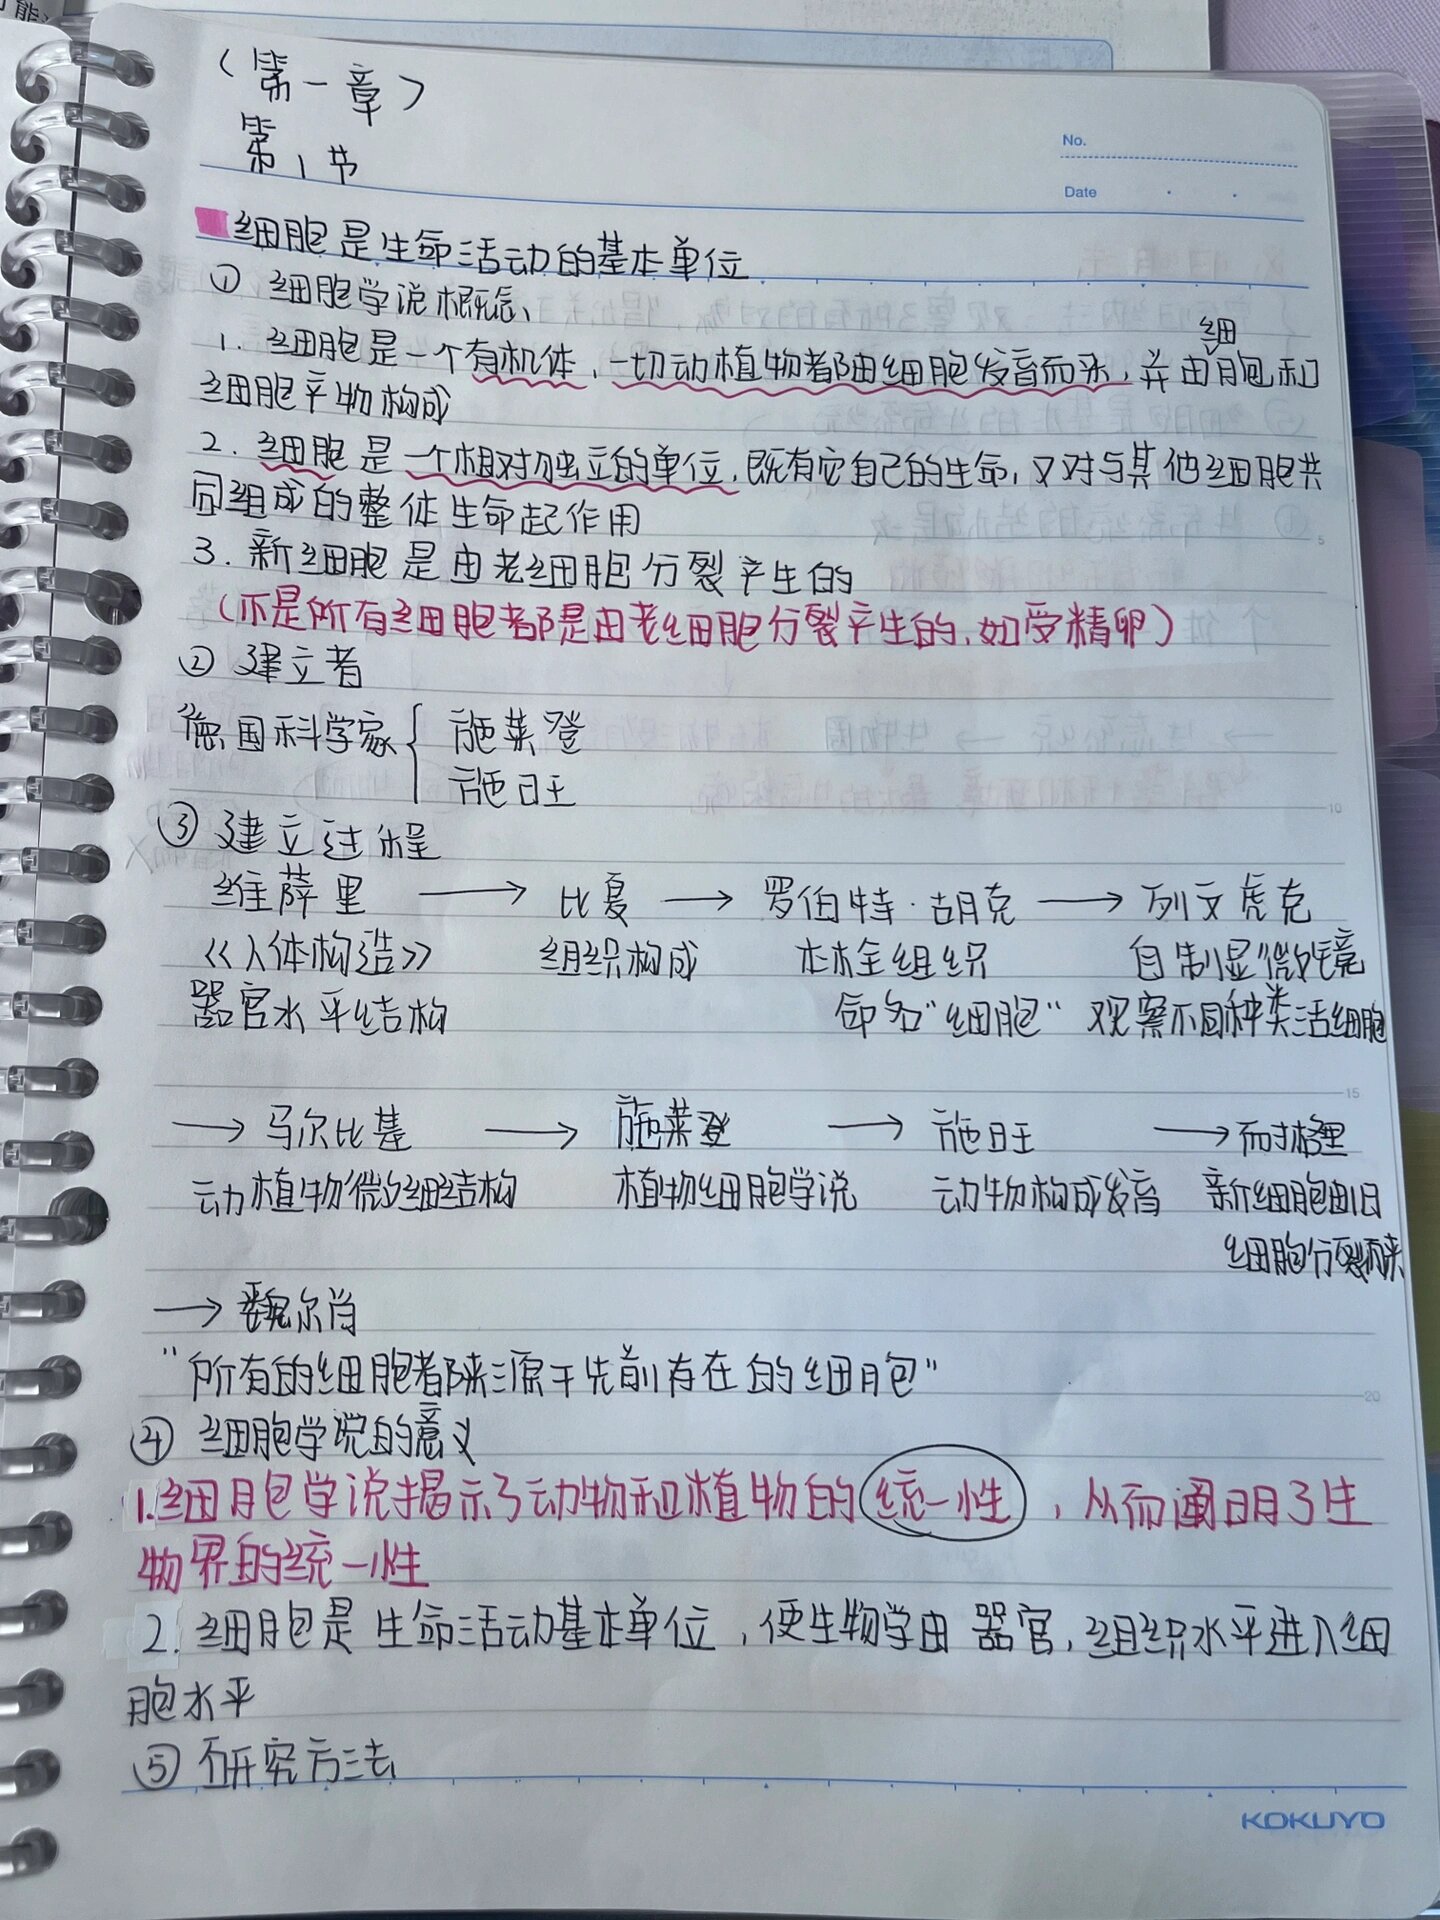 (第一章)
第1节
No.
Date
细胞是生命活动的基本单位
① 细胞学说概念、
1. 细胞是一个有机体，一切动植物都由细胞发育而来，并由细胞和
细胞产物构成
2. 细胞是一个相对独立的单位，既有它自己的生命，又对与其他细胞共
同组成的整体生命起作用
3. 新细胞是由老细胞分裂产生的
(不是所有细胞都是由老细胞分裂产生的，如受精卵)
② 建立者
德国科学家{ 施莱登
施旺
③ 建立过程
维萨里 → 比夏 → 罗伯特·胡克 → 列文虎克
《人体构造》 组织构成 木栓组织 自制显微镜
器官水平结构 命名“细胞” 观察不同种类活细胞
→ 马尔比基 → 施莱登 → 施旺 → 耐格里
动植物微细结构 植物细胞学说 动物构成发育 新细胞由旧
细胞分裂而来
→ 魏尔肖
“所有的细胞都来源于先前存在的细胞”
④ 细胞学说的意义
1.细胞学说揭示了动物和植物的统一性，从而阐明了生
物界的统一性
2. 细胞是生命活动基本单位，使生物学由器官，组织水平进入细
胞水平
⑤ 研究方法
KOKUYO